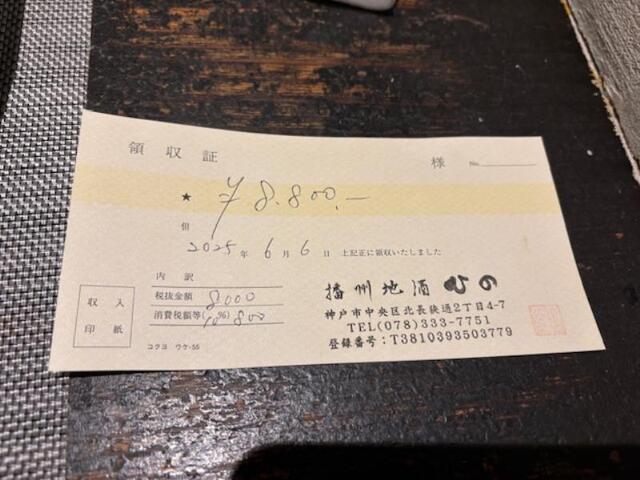 領収証 様 No.
★ ¥8.800.—
但
2025年 6月 6日 上記正に領収いたしました
内訳
税抜金額 8000
消費税額等(10%) 800
収入
印紙
コクヨ ウケ-55
播州地酒 ひの
神戸市中央区北長狭通2丁目4-7
TEL(078)333-7751
登録番号:T3810393503779